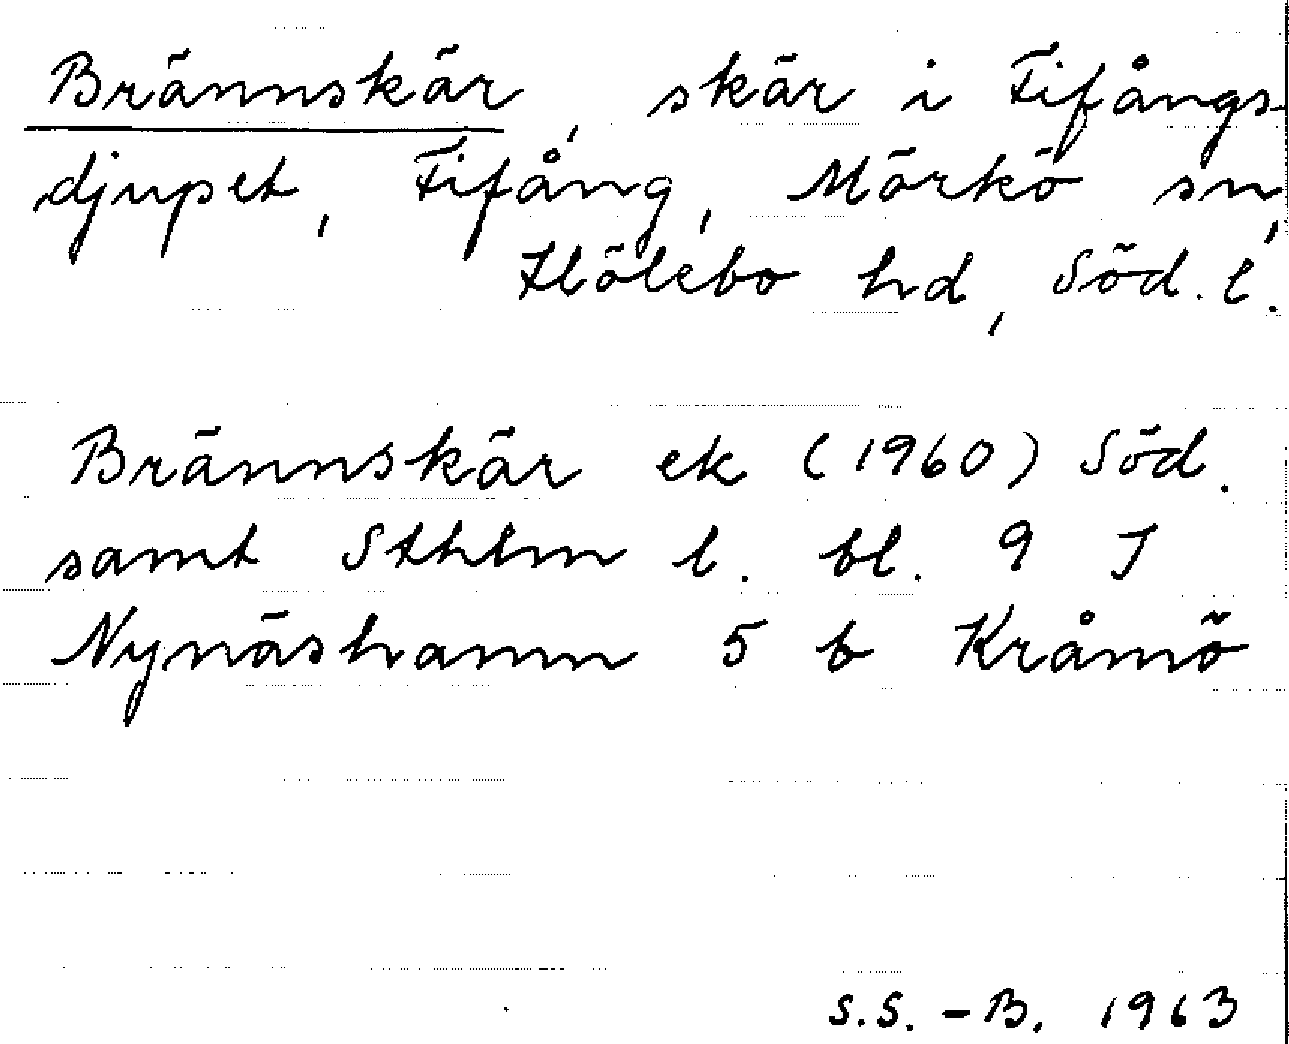 Brännskär, skär i Fifångs
djupet, Fifång, Mörkö sn,
Hölebo hd, Söd. l.
Brännskär ek (1960) Söd.
samt Sthlm l. bl. 9 J
Nynäshamn 5 b Kråmö
S.S.-B. 1963